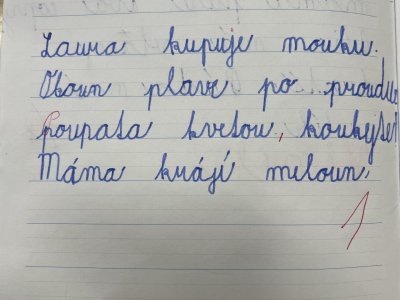 Laura kupuje mouku.
Okoun plave po proudu
poupata kvetou, koukejte
Máma krájí meloun.
1